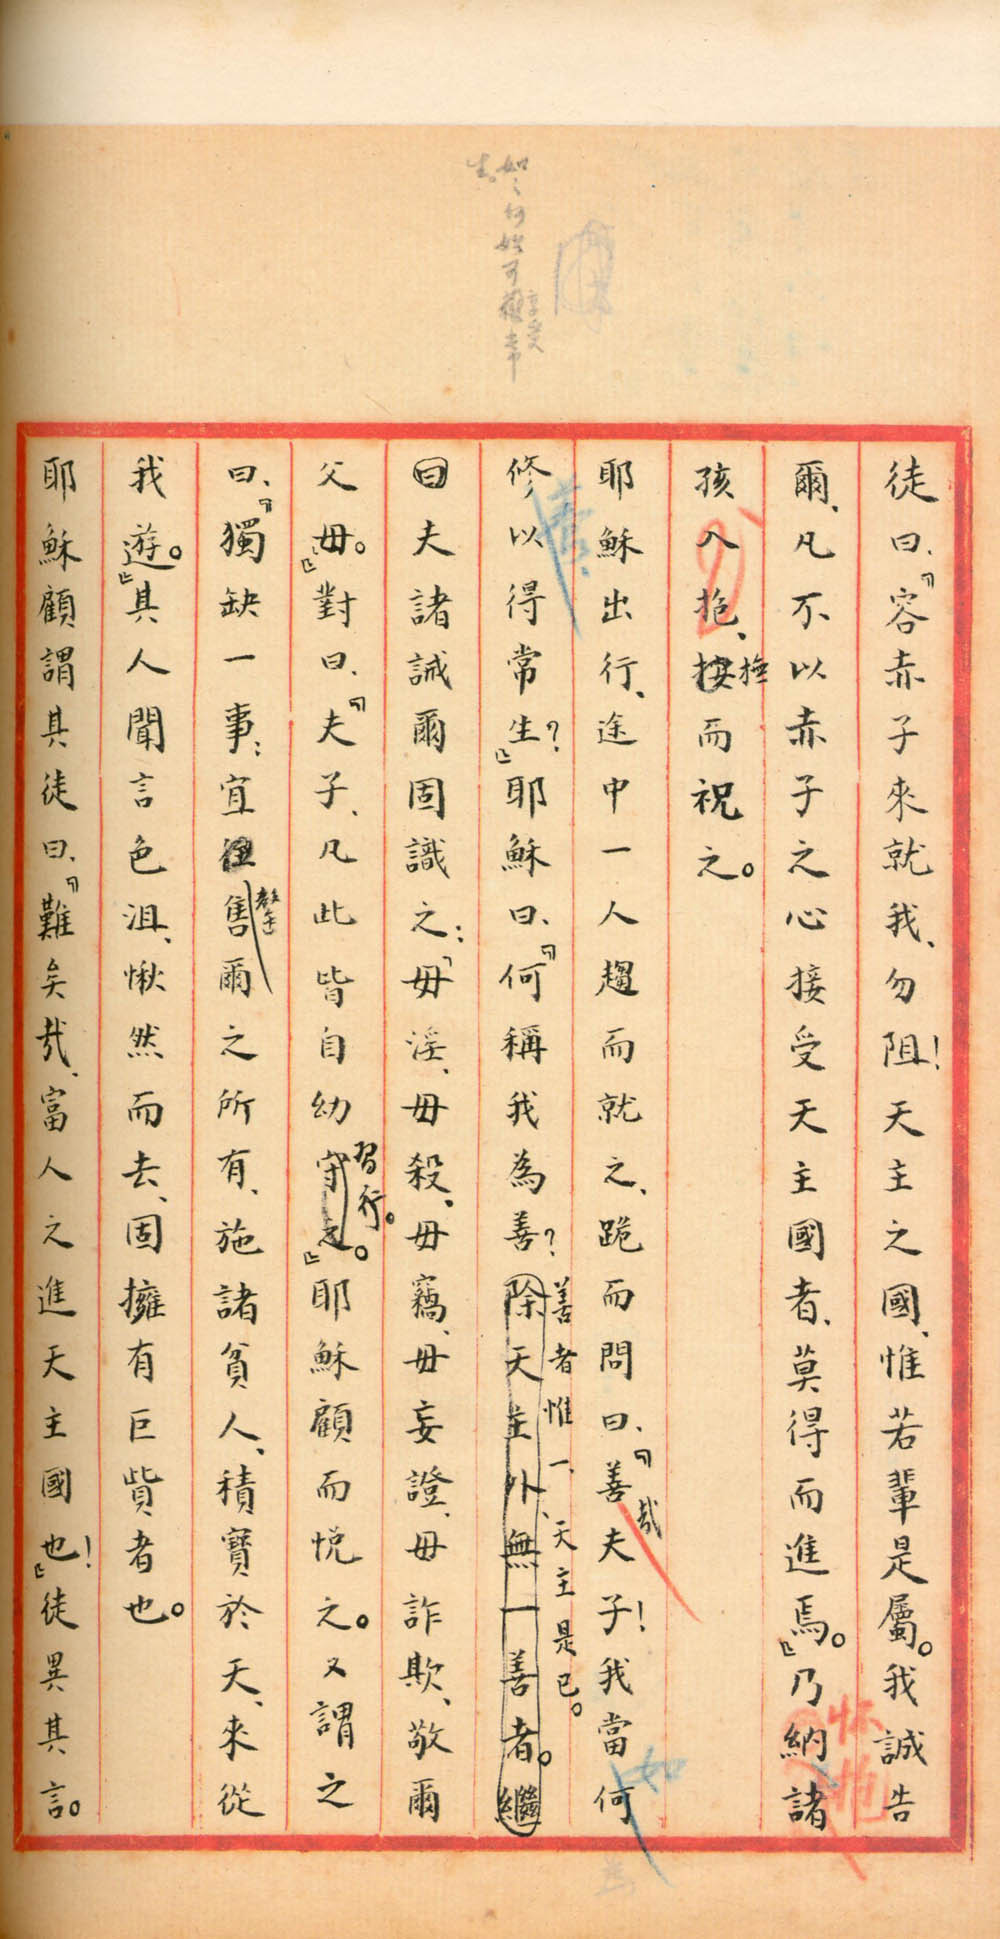 徒曰、『容赤子來就我、勿阻！天主之國、惟若輩是屬。我誠告
爾、凡不以赤子之心接受天主國者、莫得而進焉。』乃納諸
懷抱
孩入抱、按而祝之。
撫
耶穌出行、途中一人趨而就之、跪而問曰、『善夫子！我當何
哉
如
修以得常生？』耶穌曰、『何稱我為善？除天主外、無一善者。繼
善者惟一、天主是已。
曰夫諸誡爾固識之：『毋淫、毋殺、毋竊、毋妄證、毋詐欺、敬爾
父毋。』對曰、『夫子、凡此皆自幼守之。』耶穌顧而悅之。又謂之
習行。
曰、『獨缺一事：宜售爾之所有、施諸貧人、積寶於天、來從
罄
我遊。』其人聞言色沮、愀然而去、固擁有巨貲者也。
耶穌顧謂其徒曰、『難矣哉、富人之進天主國也！』徒異其言。
如何始可享受常
生